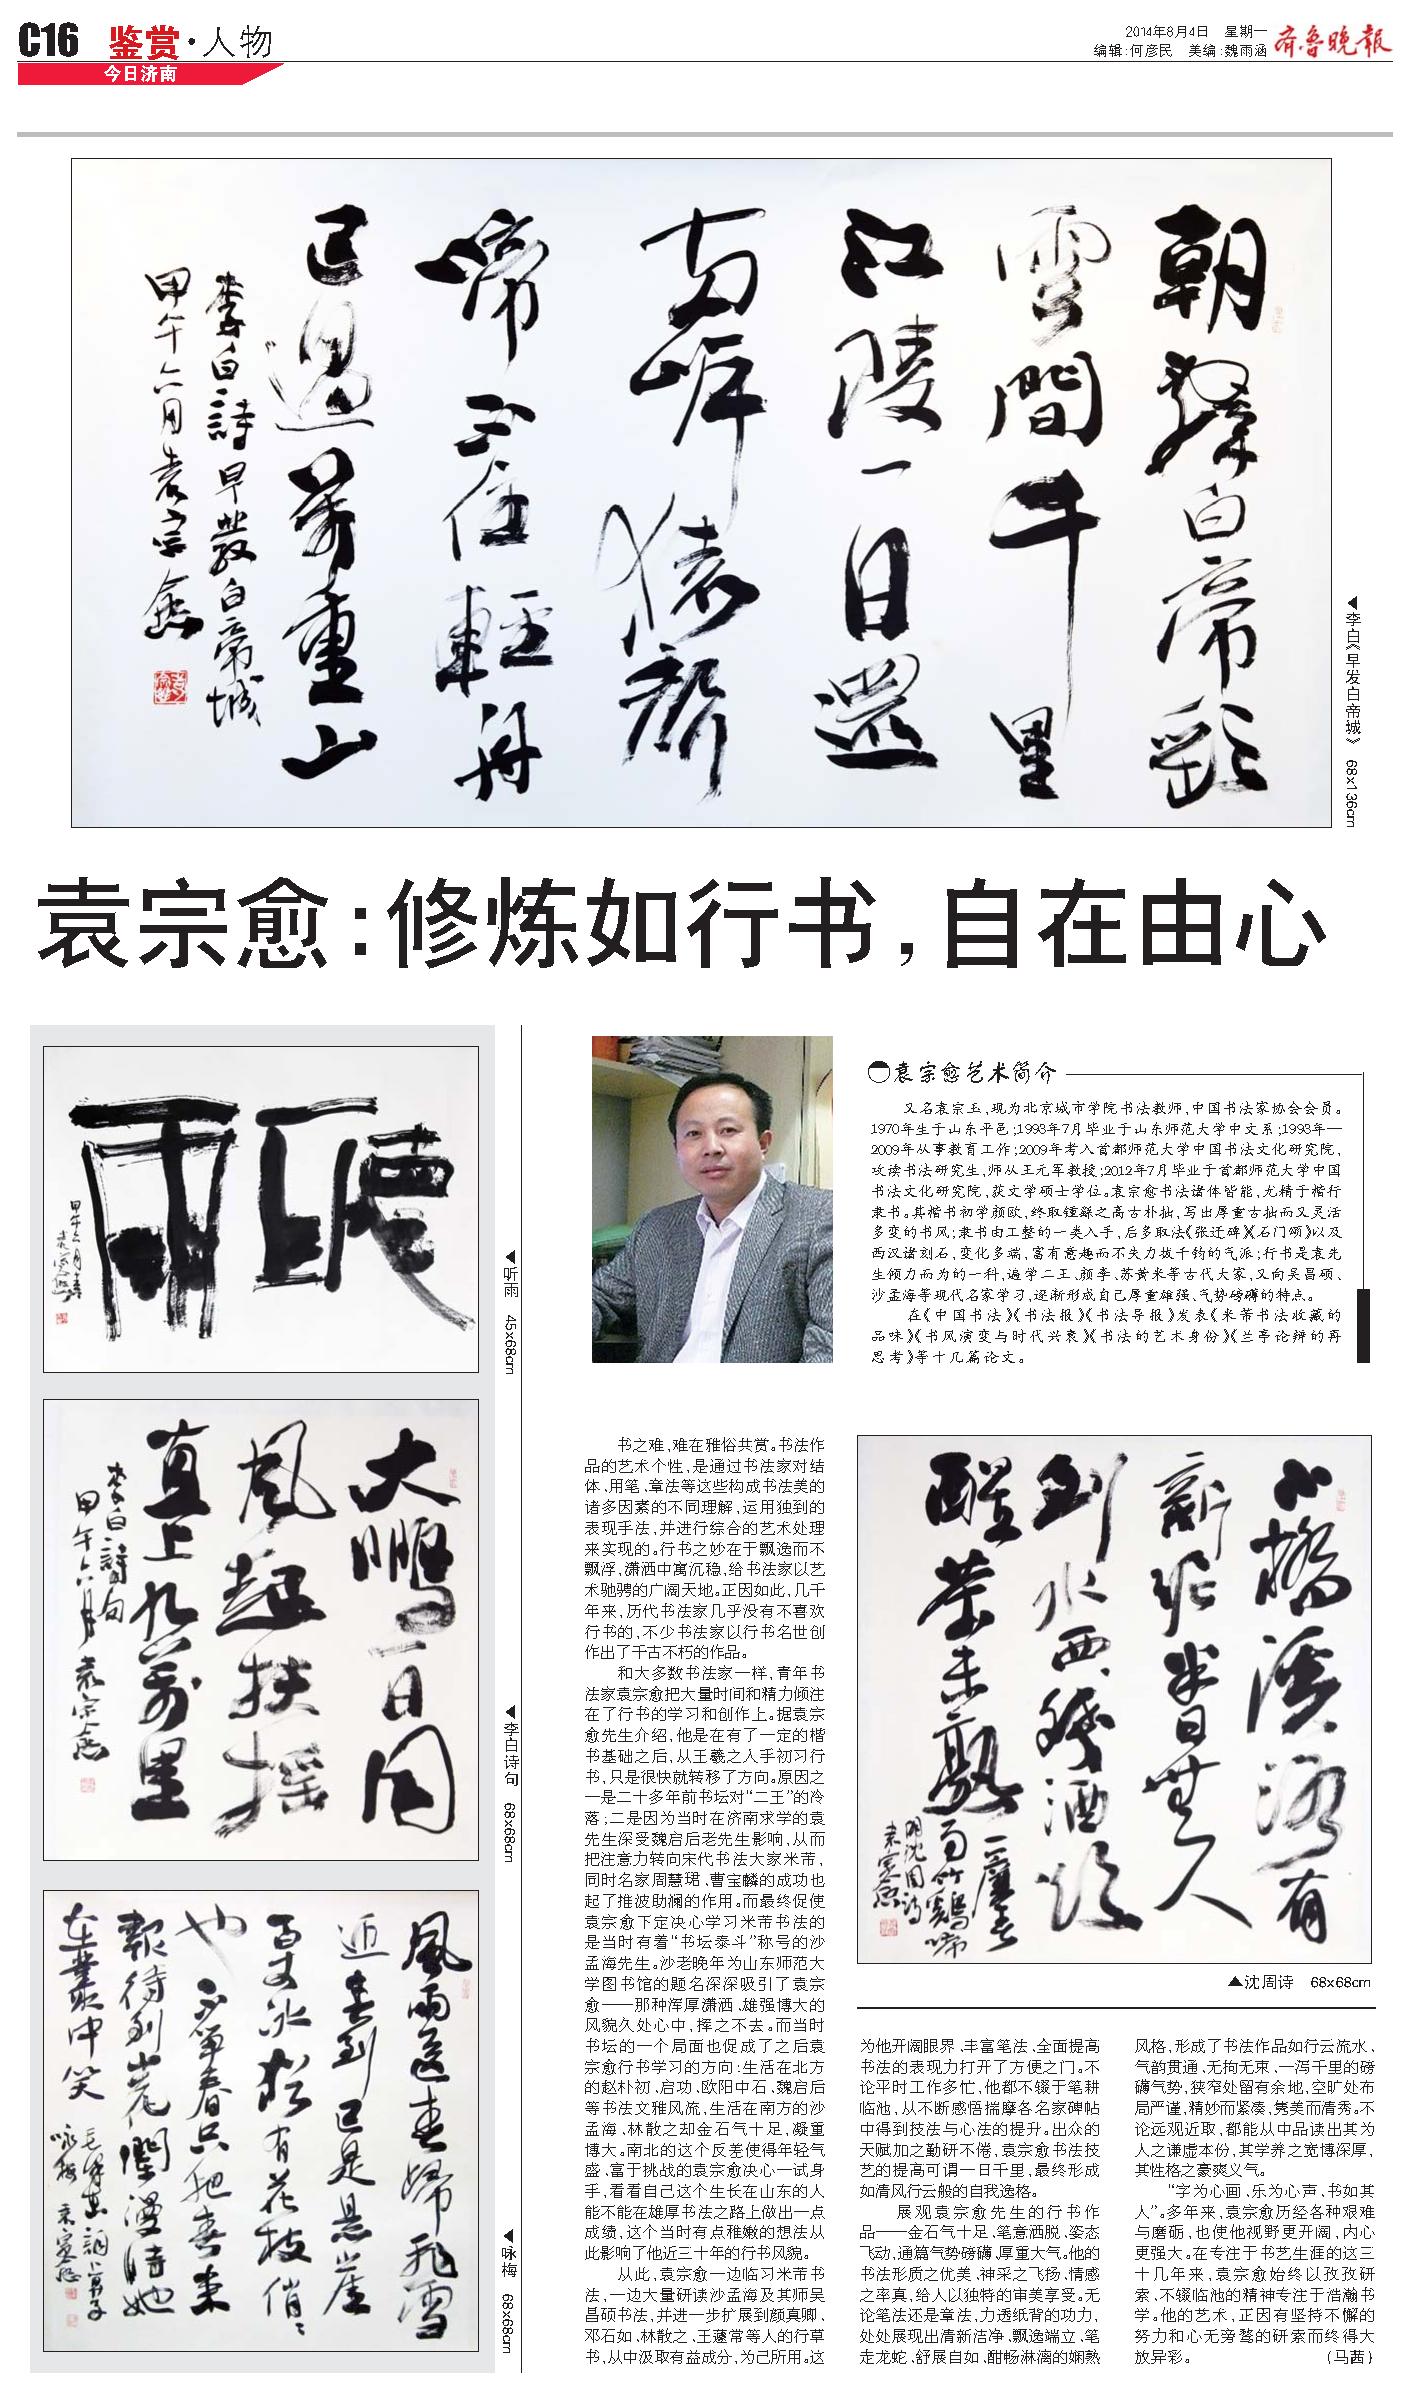 C16 鉴赏·人物
今日济南
2014年8月4日 星期一
编辑:何彦民 美编:魏雨涵
齐鲁晚报
朝辞白帝彩
雲間千里
江陵一日還
两岸猿聲
啼不住輕舟
已過萬重山
李白詩早發白帝城
甲午六月袁宗愈
◀李白《早发白帝城》 68x136cm
袁宗愈:修炼如行书,自在由心
聽雨
甲午六月
◀听雨 45x68cm
大鵬一日同
風起扶摇
直上九萬里
李白詩句
甲午六月袁宗愈
◀李白诗句 68x68cm
風雨送春歸飛雪
迎春到已是悬崖
百丈冰猶有花枝俏
也不争春只把春来
報待到山花爛漫時她
在叢中笑
毛澤東詞卜算子
咏梅 袁宗愈
◀咏梅 68x68cm
袁宗愈艺术简介
又名袁宗玉,现为北京城市学院书法教师,中国书法家协会会员。
1970年生于山东平邑;1993年7月毕业于山东师范大学中文系;1993年—
2009年从事教育工作;2009年考入首都师范大学中国书法文化研究院,
攻读书法研究生,师从王元军教授;2012年7月毕业于首都师范大学中国
书法文化研究院,获文学硕士学位。袁宗愈书法诸体皆能,尤精于楷行
隶书。其楷书初学颜欧,终取锺繇之高古朴拙,写出厚重古拙而又灵活
多变的书风;隶书由工整的一类入手,后多取法《张迁碑》《石门颂》以及
西汉诸刻石,变化多端,富有意趣而不失力拔千钧的气派;行书是袁先
生倾力而为的一科,遍学二王、颜李、苏黄米等古代大家,又向吴昌硕、
沙孟海等现代名家学习,逐渐形成自己厚重雄强、气势磅礴的特点。
在《中国书法》《书法报》《书法导报》发表《米芾书法收藏的
品味》《书风演变与时代兴衰》《书法的艺术身份》《兰亭论辩的再
思考》等十几篇论文。
书之难,难在雅俗共赏。书法作
品的艺术个性,是通过书法家对结
体、用笔、章法等这些构成书法美的
诸多因素的不同理解,运用独到的
表现手法,并进行综合的艺术处理
来实现的。行书之妙在于飘逸而不
飘浮,潇洒中寓沉稳,给书法家以艺
术驰骋的广阔天地。正因如此,几千
年来,历代书法家几乎没有不喜欢
行书的,不少书法家以行书名世创
作出了千古不朽的作品。
和大多数书法家一样,青年书
法家袁宗愈把大量时间和精力倾注
在了行书的学习和创作上。据袁宗
愈先生介绍,他是在有了一定的楷
书基础之后,从王羲之入手初习行
书,只是很快就转移了方向。原因之
一是二十多年前书坛对“二王”的冷
落;二是因为当时在济南求学的袁
先生深受魏启后老先生影响,从而
把注意力转向宋代书法大家米芾,
同时名家周慧珺、曹宝麟的成功也
起了推波助澜的作用。而最终促使
袁宗愈下定决心学习米芾书法的
是当时有着“书坛泰斗”称号的沙
孟海先生。沙老晚年为山东师范大
学图书馆的题名深深吸引了袁宗
愈——那种浑厚潇洒、雄强博大的
风貌久处心中,挥之不去。而当时
书坛的一个局面也促成了之后袁
宗愈行书学习的方向:生活在北方
的赵朴初、启功、欧阳中石、魏启后
等书法文雅风流,生活在南方的沙
孟海、林散之却金石气十足,凝重
博大。南北的这个反差使得年轻气
盛、富于挑战的袁宗愈决心一试身
手,看看自己这个生长在山东的人
能不能在雄厚书法之路上做出一点
成绩,这个当时有点稚嫩的想法从
此影响了他近三十年的行书风貌。
从此,袁宗愈一边临习米芾书
法,一边大量研读沙孟海及其师吴
昌硕书法,并进一步扩展到颜真卿、
邓石如、林散之、王蘧常等人的行草
书,从中汲取有益成分,为己所用。这
小橋溪路有
新泥半日無人
到水西殘酒欲
醒茶未熟
一簾春雨竹鷄啼
明沈周詩
袁宗愈
▲沈周诗 68x68cm
为他开阔眼界、丰富笔法、全面提高
书法的表现力打开了方便之门。不
论平时工作多忙,他都不辍于笔耕
临池,从不断感悟揣摩各名家碑帖
中得到技法与心法的提升。出众的
天赋加之勤研不倦,袁宗愈书法技
艺的提高可谓一日千里,最终形成
如清风行云般的自我逸格。
展观袁宗愈先生的行书作
品——金石气十足、笔意洒脱、姿态
飞动,通篇气势磅礴、厚重大气。他的
书法形质之优美、神采之飞扬、情感
之率真,给人以独特的审美享受。无
论笔法还是章法,力透纸背的功力,
处处展现出清新洁净、飘逸端立、笔
走龙蛇、舒展自如、酣畅淋漓的娴熟
风格,形成了书法作品如行云流水、
气韵贯通、无拘无束、一泻千里的磅
礴气势,狭窄处留有余地,空旷处布
局严谨,精妙而紧凑,隽美而清秀。不
论远观近取,都能从中品读出其为
人之谦虚本份,其学养之宽博深厚,
其性格之豪爽义气。
“字为心画、乐为心声、书如其
人”。多年来,袁宗愈历经各种艰难
与磨砺,也使他视野更开阔,内心
更强大。在专注于书艺生涯的这三
十几年来,袁宗愈始终以孜孜研
索、不辍临池的精神专注于浩瀚书
学。他的艺术,正因有坚持不懈的
努力和心无旁骛的研索而终得大
放异彩。 (马茜)